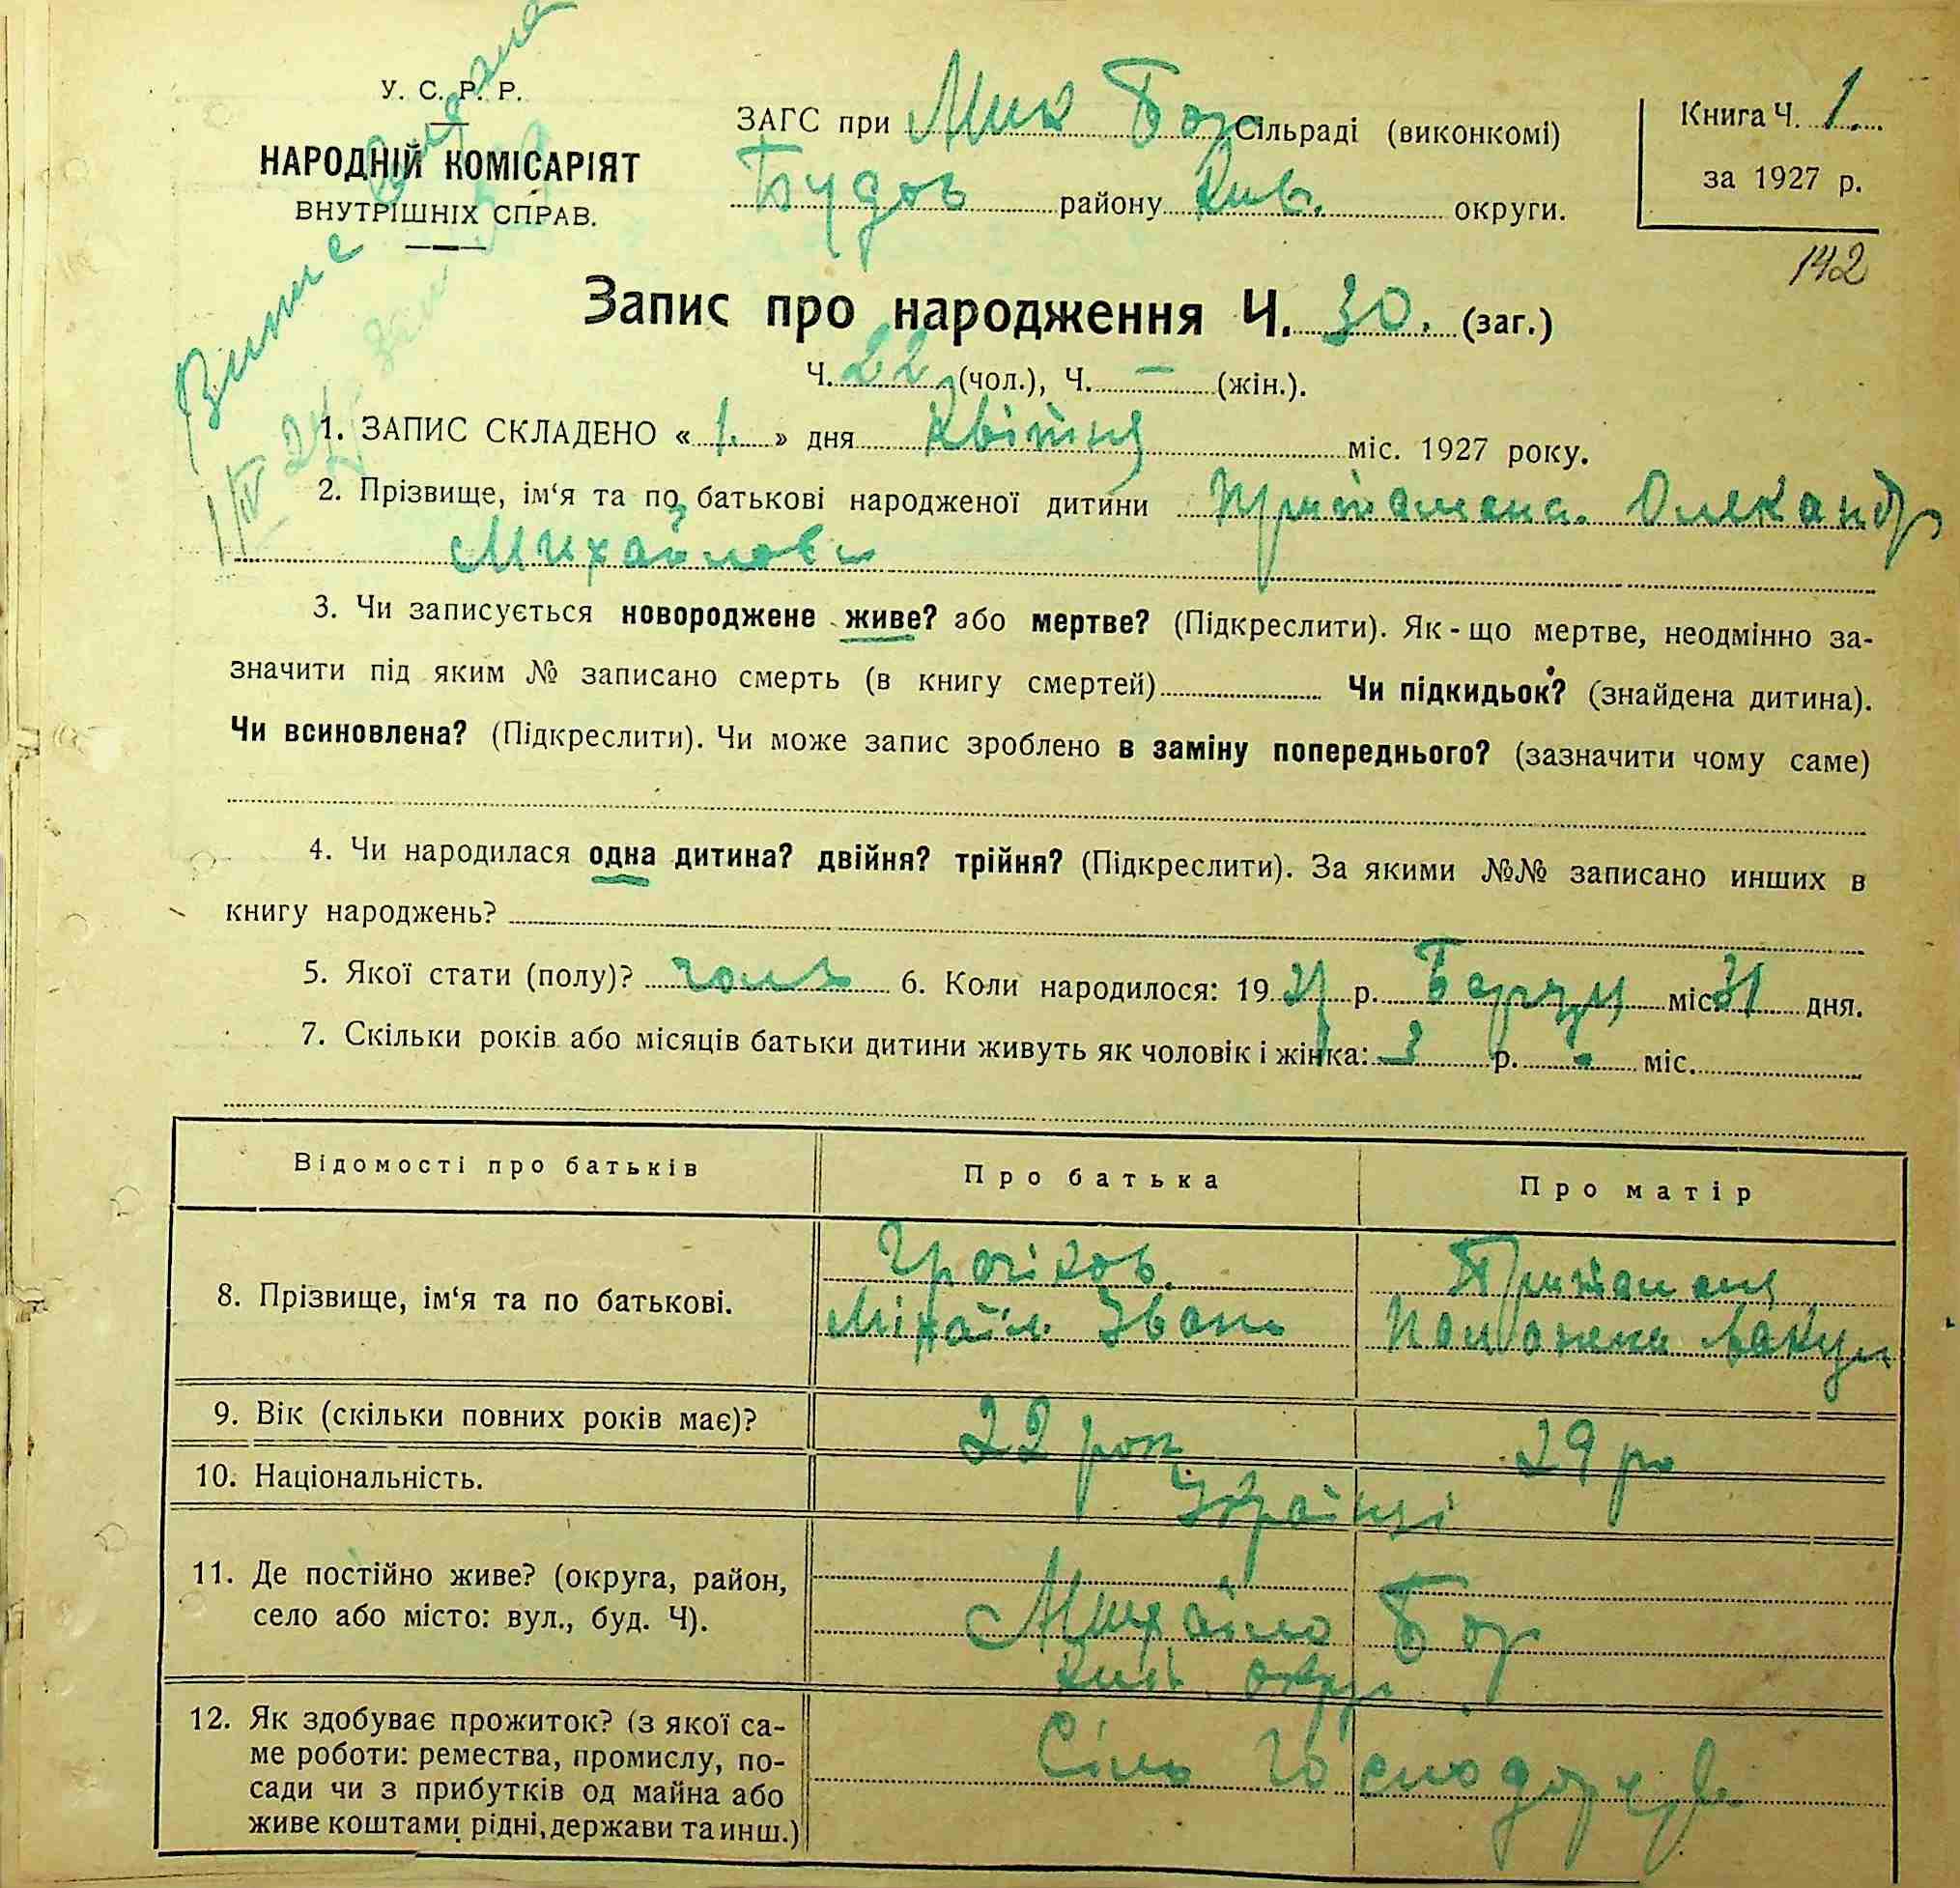 У. С. Р. Р.
НАРОДНІЙ КОМІСАРІЯТ
ВНУТРІШНІХ СПРАВ.
ЗАГС при Мих Бор Сільраді (виконкомі)
Будов району Київ. округи.
Книга Ч. 1.
за 1927 р.
142
Запис про народження Ч. 30. (заг.)
Ч. 22 (чол.), Ч. — (жін.).
1. ЗАПИС СКЛАДЕНО « 1. » дня Квітня міс. 1927 року.
2. Прізвище, ім‘я та по батькові народженої дитини Олександр
Михайлов
3. Чи записується новороджене живе? або мертве? (Підкреслити). Як-що мертве, неодмінно за-
значити під яким № записано смерть (в книгу смертей) Чи підкидьок? (знайдена дитина).
Чи всиновлена? (Підкреслити). Чи може запис зроблено в заміну попереднього? (зазначити чому саме)
4. Чи народилася одна дитина? двійня? трійня? (Підкреслити). За якими №№ записано инших в
книгу народжень?
5. Якої стати (полу)? чолов 6. Коли народилося: 19 27 р. Березня міс. 31 дня.
7. Скільки років або місяців батьки дитини живуть як чоловік і жінка: 3 р. - міс.
Відомості про батьків Про батька Про матір
8. Прізвище, ім‘я та по батькові.
Міхаіл Іван
9. Вік (скільки повних років має)? 22 рок 29 ро
10. Національність. Українці
11. Де постійно живе? (округа, район,
село або місто: вул., буд. Ч).
с Михайло Бор
Київ. окру
12. Як здобуває прожиток? (з якої са-
ме роботи: ремества, промислу, по-
сади чи з прибутків од майна або
живе коштами рідні, держави та инш.)
Сіль Господарств